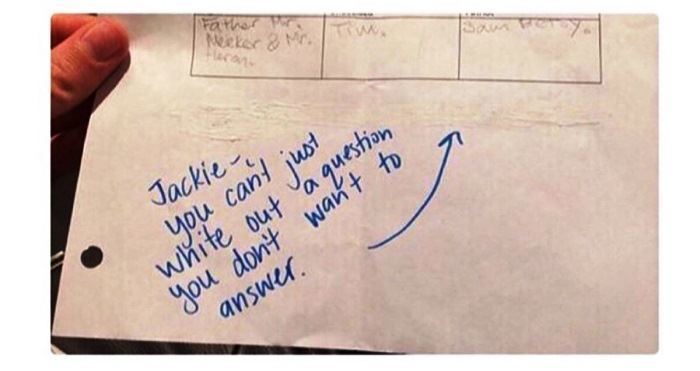 Father Mr. Tim. Sam Betsy.
Meeker & Mr.
Heron.
Jackie-
you can't just
white out a question
you don't want to
answer.